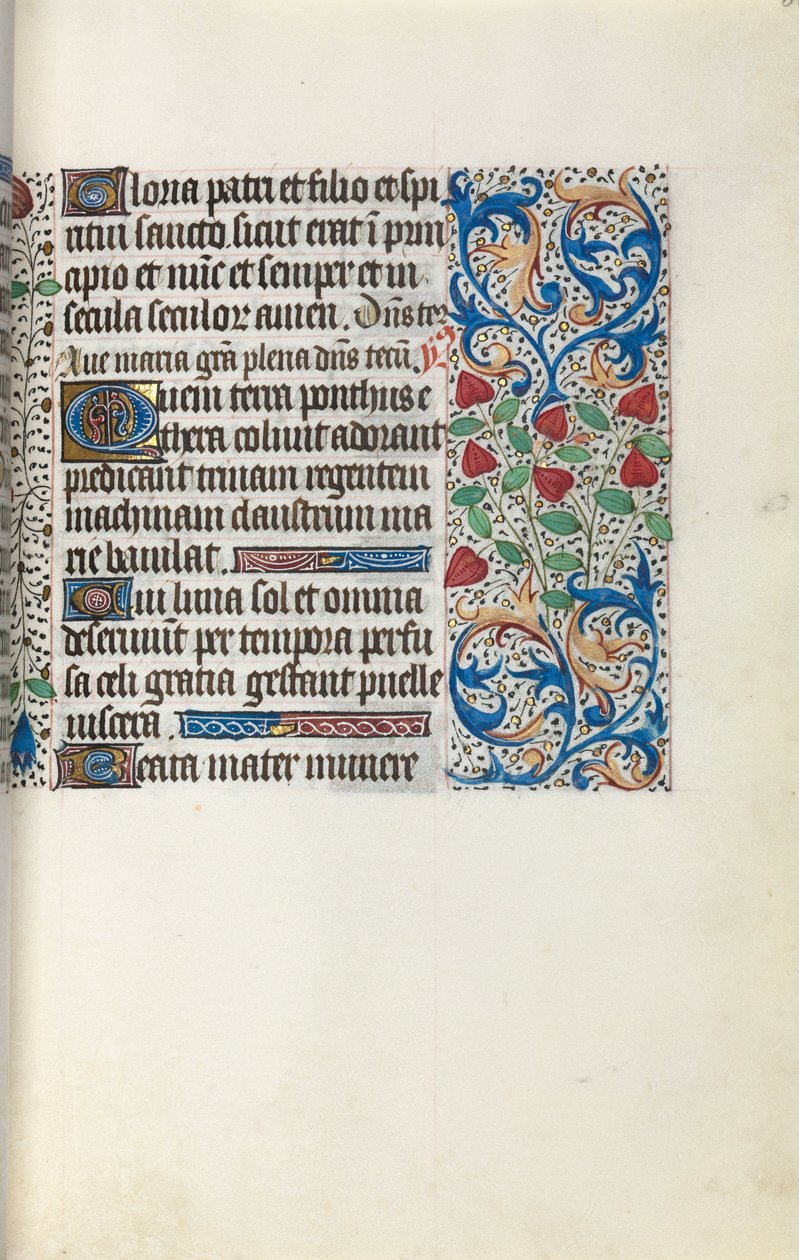 Gloria patri et filio et spi
ritui sancto. sicut erat ī prin
cipio et nūc et semper et in
secula seculoꝝ amen. Dn̄s ter
Aue maria grā plena dn̄s tecū. yꝰ
Quem terra ponthus e
thera colunt adorant
predicant trinam regentem
machinam claustrum ma
rie baiulat.
Cui luna sol et omnia
deseruiūt per tempora perfu
sa celi gratia gestant puelle
uiscera.
Beata mater munere